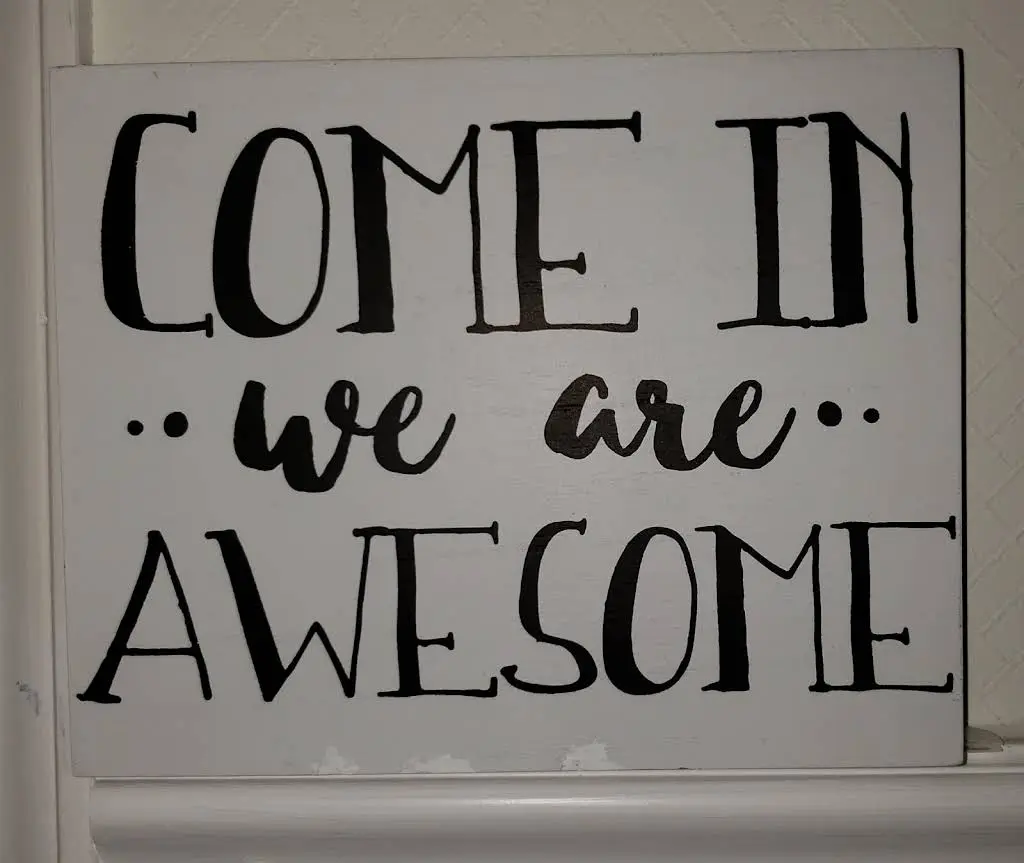 COME IN
•• we are ••
AWESOME